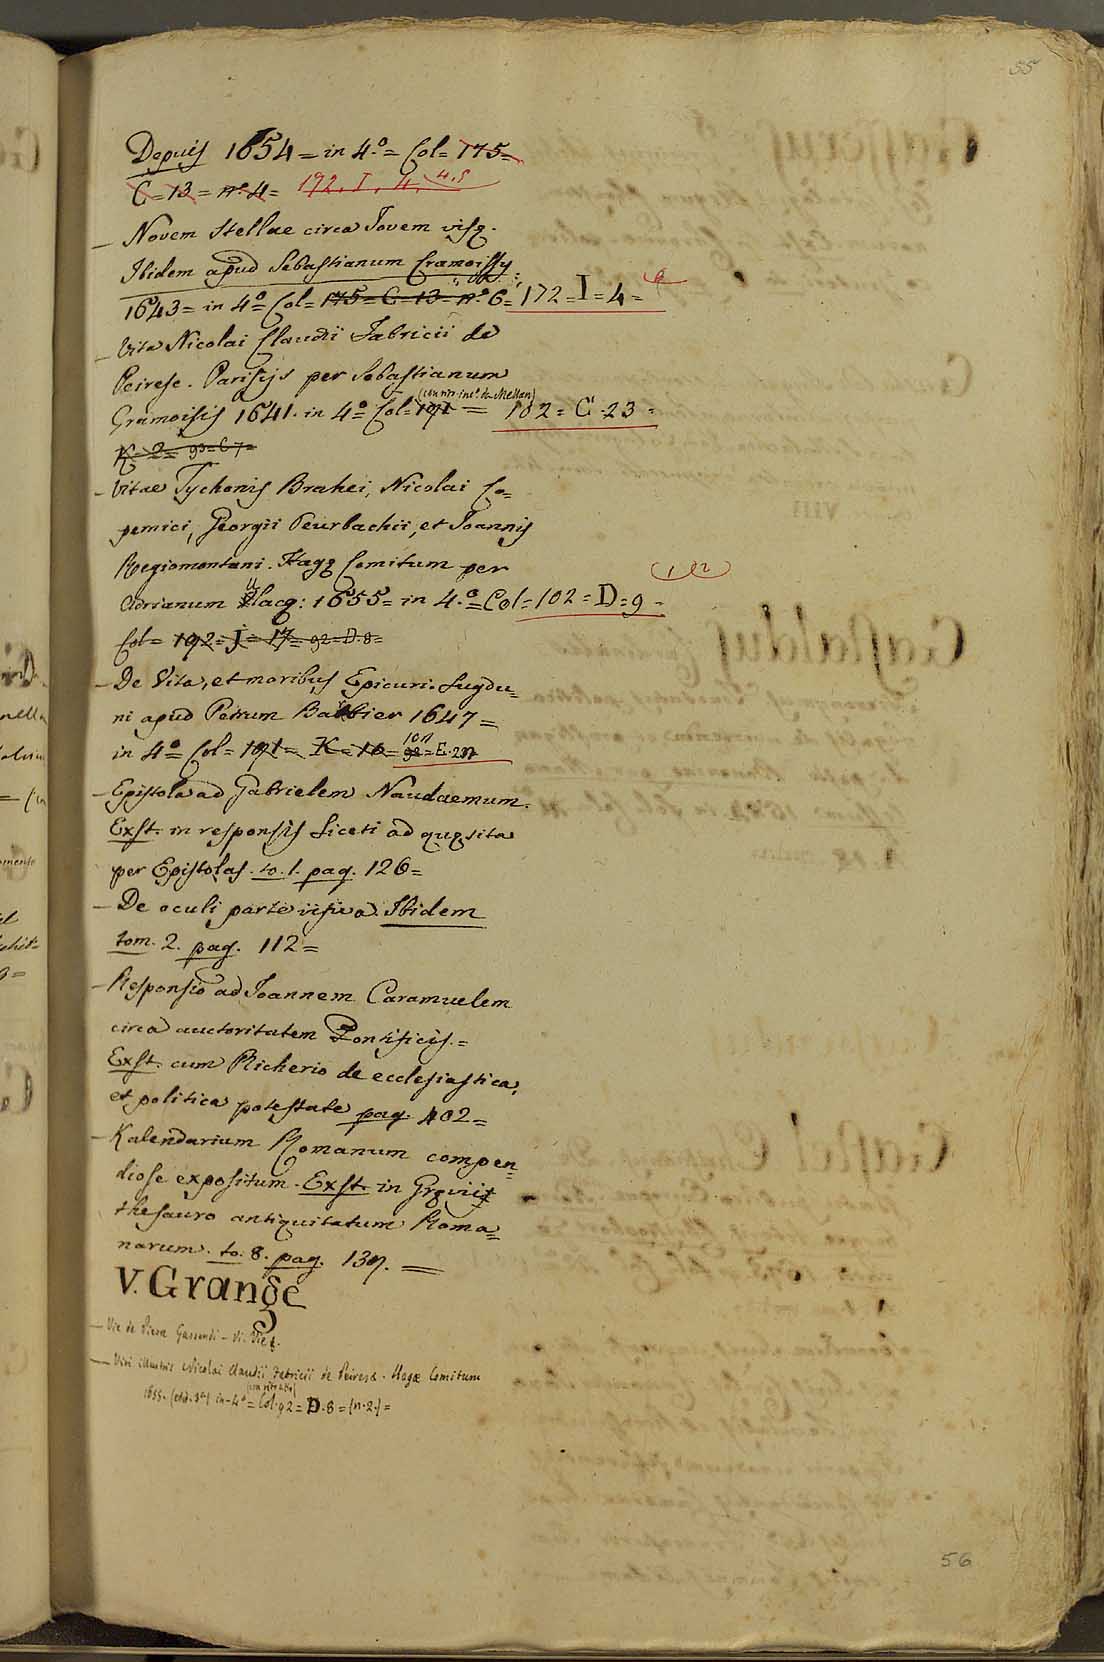 55
Depuis 1654 = in 4.º = Col= 175=
C=13= nº 4= 172. I. 4. 4.5
_ Novem Stellae circa Jovem visę.
Ibidem apud Sebastianum Cramoisÿ
1643= in 4º= Col= 175= C= 13= nº 6= 172= I= 4=
_ Vita Nicolai Claudii Fabricii de
Peiresc. Parisijs per Sebastianum
Gramoisis 1641. in 4º= Col= 191 = 102= C 23=
K= 2= 93= C 7=
_ Vitae Tychonis Brahei, Nicolai Co=
pernici, Georgii Peurbachii, et Joannis
Regiomontani. Hagę Comitum per
Adrianum Vlacq: 1655= in 4.º= Col= 102= D= 9=
Col= 192= J= 17= 92= D. 8=
_ De Vita, et moribus Epicuri. Lugdu=
ni apud Petrum Barbier 1647=
in 4º= Col= 191= K= 16= 92= E. 23
101
_ Epistola ad Gabrielem Naudaemum.
Exst. in responsis Liceti ad quęsita
per Epistolas. to. 1. pag. 126=
_ De oculi parte visiva. Ibidem
tom. 2. pag. 112=
_ Responsio ad Joannem Caramuelem
circa auctoritatem Pontificis.=
Exst. cum Richerio de ecclesiastica,
et politica potestate pag. 402=
_ Kalendarium Romanum compen=
diose expositum. Exst. in Gręvii
thesauro antiquitatum Roma=
narum. to: 8. pag. 137. =
V. Grange
_ Vie de Pierre Gassendi _ V.
_ Viri illustris Nicolai Claudii Fabricii de Peiresk. Hagæ Comitum
1655. (edit. 3ª) in-4º= Col. 92= D. 8= (n. 2.)=
56